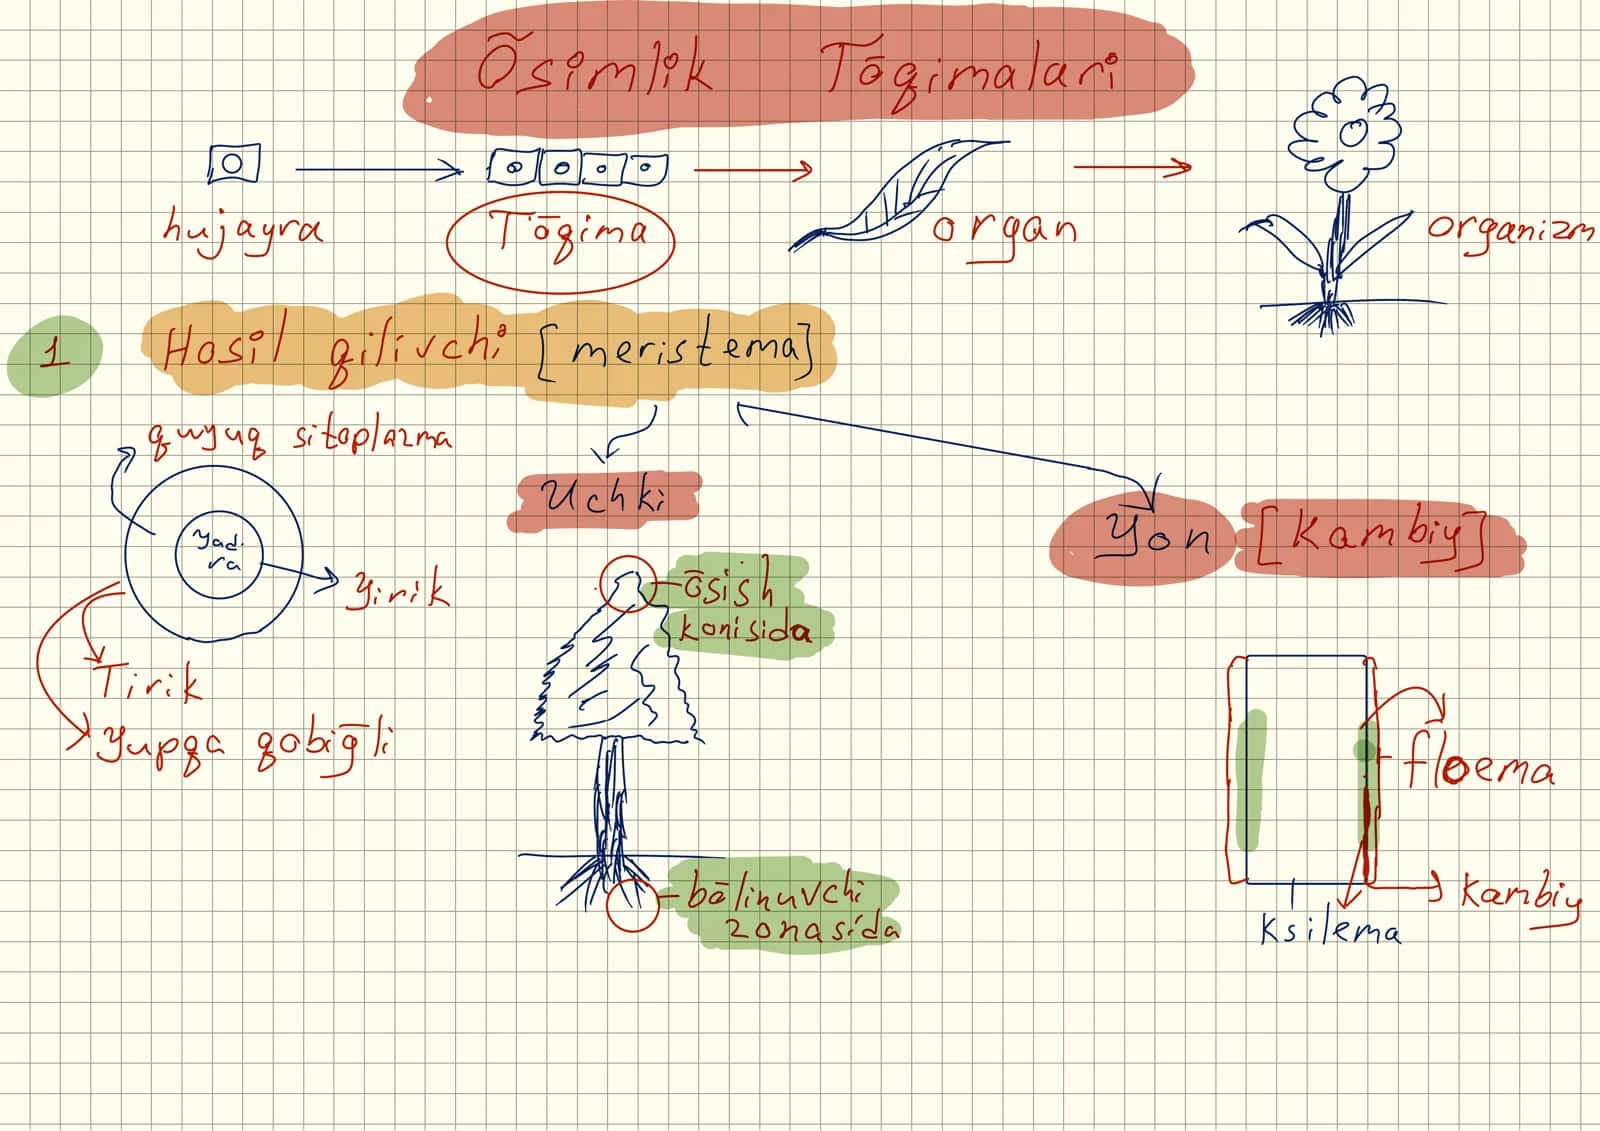 Ōsimlik Tōqimalari
hujayra
Tōqima
organ
organizm
1
Hosil qilivchi [meristema]
quyuq sitoplazma
Yad.
ra
Yirik
Tirik
Yupqa qobiḡli
Uchki
ōsish
konisida
bōlinuvchi
zonasida
Yon [Kambiy]
floema
Kambiy
Ksilema